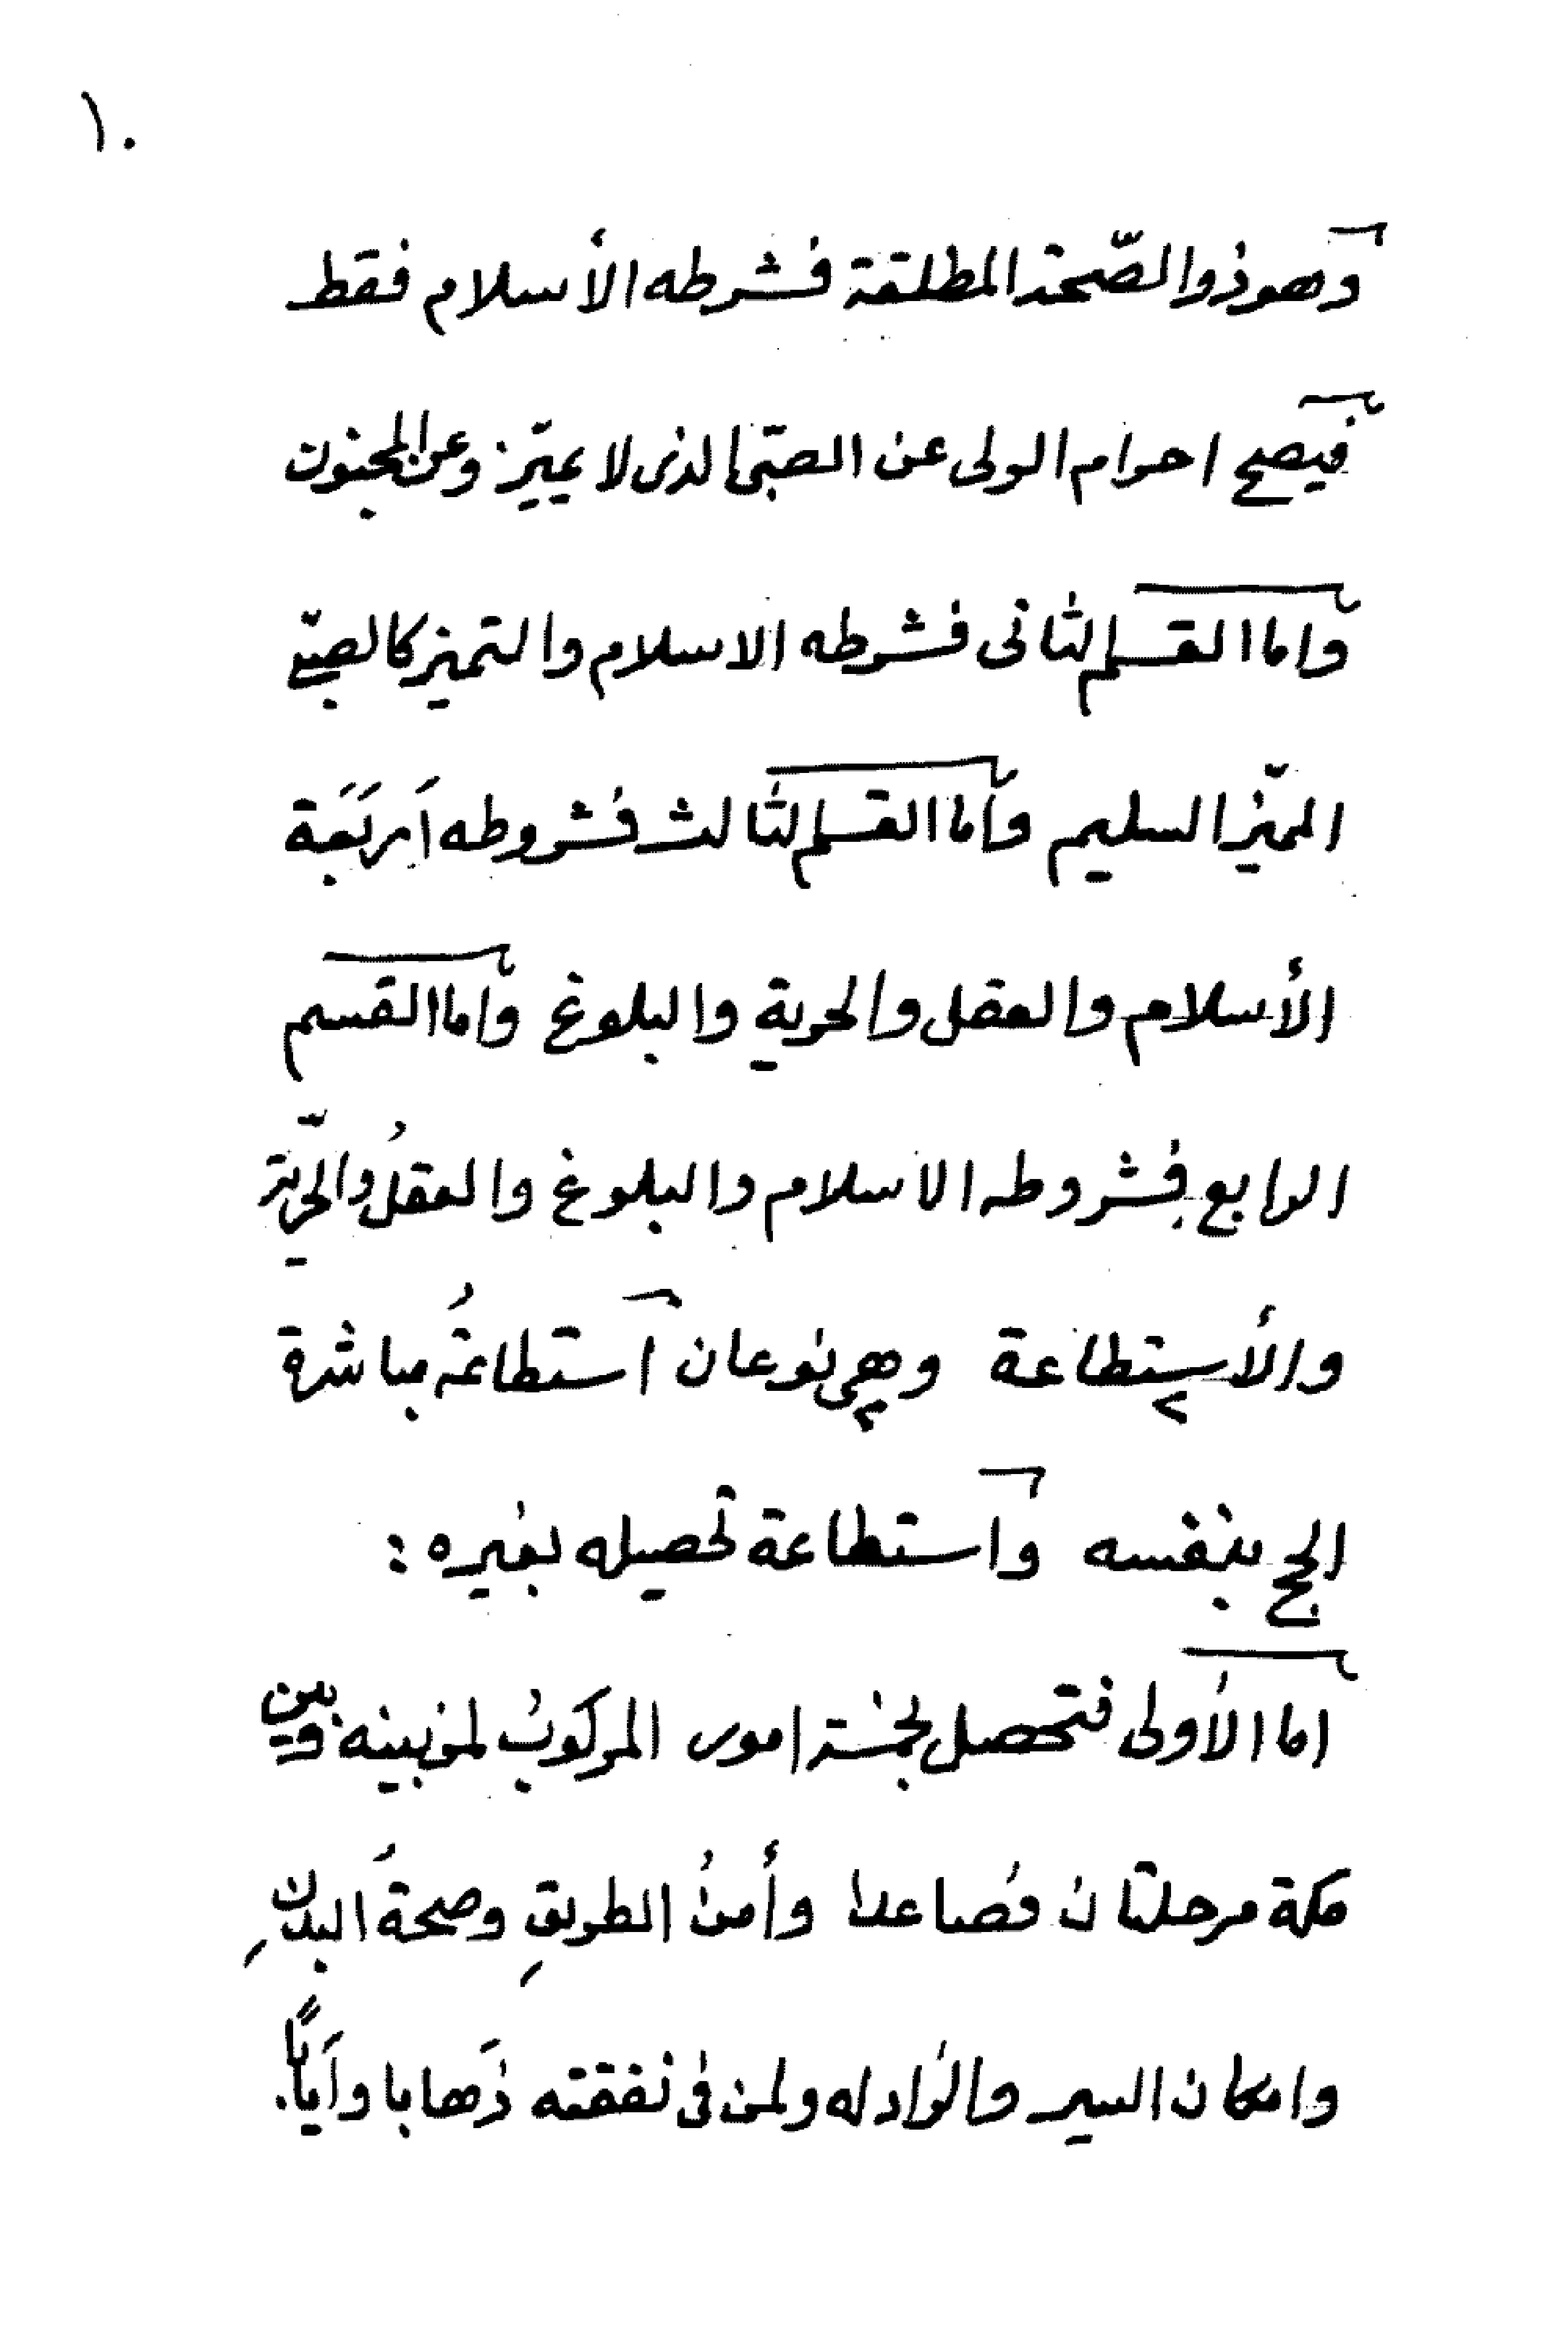 ١٠
وهو ذو الصّحة المطلقة فشرطه الأسلام فقط
فيصح احرام الولى عن الصبّى الذى لا يميّز وعن المجنون
واما القسم الثانى فشرطه الاسلام والتميز كالصبّى
المميّز السليم وأما القسم الثالث فشروطه اَربَعَة
الأسلام والعقل والحرية والبلوغ واما القسم
الرابع فشروطه الاسلام والبلوغ والعقلُ والحريّة
والأستطاعة وهى نوعان استطاعةُ مباشرة
الحج بنفسه واستطاعة تحصيله بغيره :
اما الأولى فتحصل بخمسة امور المركوبُ لمن بينه وبين
مكة مرحلتان فصاعدا وأمنُ الطريقِ وصحةُ البدنِ
وامكان السير والزاد له ولمن فى نفقته ذَهابا واَيابًا